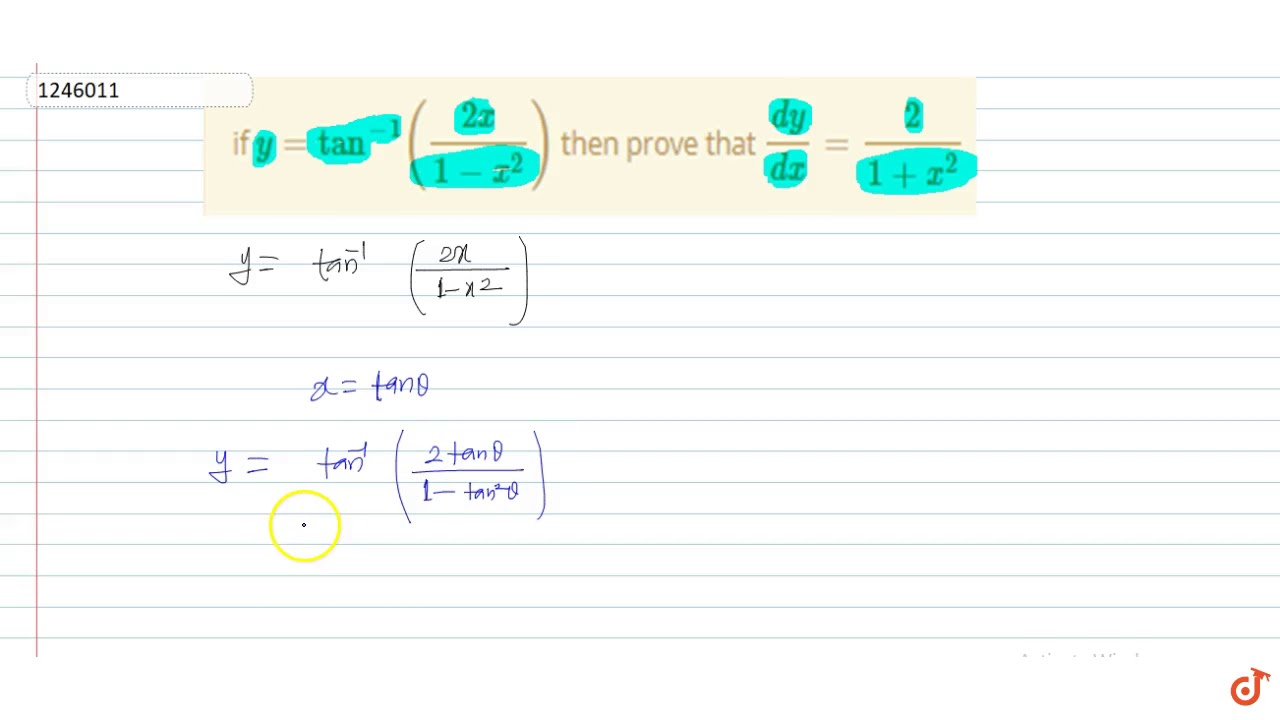 1246011
if y = tan⁻¹(2x / 1 − x²) then prove that dy/dx = 2 / 1 + x²
y = tan⁻¹ (2x / 1−x²)
x = tanθ
y = tan⁻¹ (2 tanθ / 1 − tan²θ)